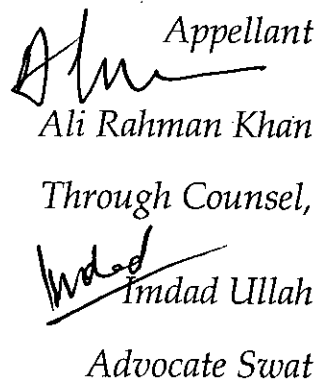 Appellant
Ali Rahman Khan
Through Counsel,
Imdad
Imdad Ullah
Advocate Swat